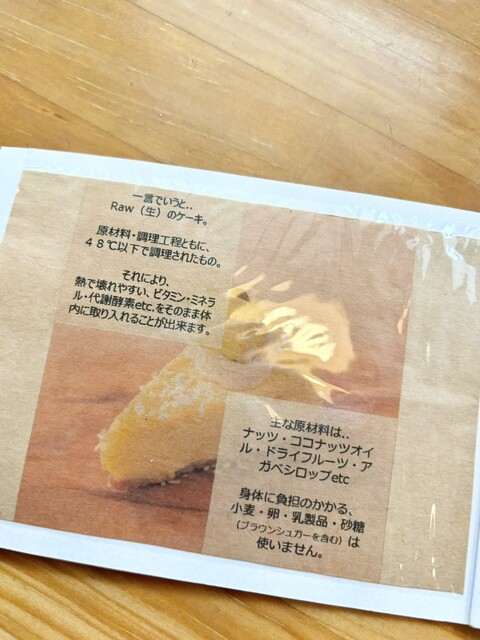 一言でいうと..
Raw（生）のケーキ。
原材料・調理工程ともに、
４８℃以下で調理されたもの。
それにより、
熱で壊れやすい、ビタミン・ミネラ
ル・代謝酵素etc.をそのまま体
内に取り入れることが出来ます。
主な原材料は..
ナッツ・ココナッツオイ
ル・ドライフルーツ・ア
ガベシロップetc
身体に負担のかかる、
小麦・卵・乳製品・砂糖
（ブラウンシュガーを含む）は
使いません。